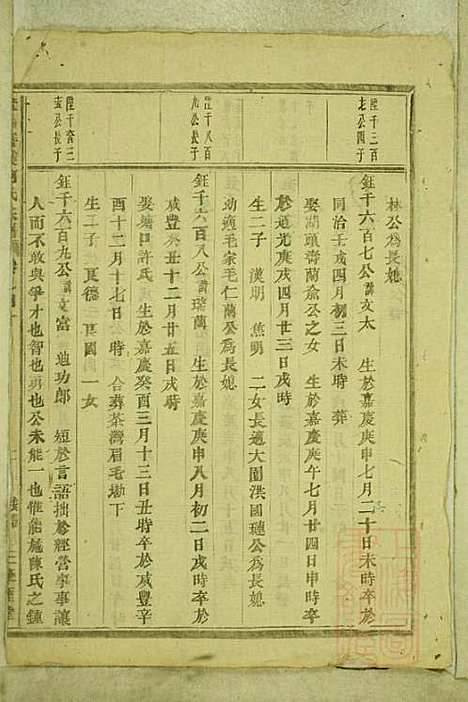 陞千三百
九公四子
陞千八百
九公長子
陞千叁三
壶公長子
林公為長媳
鈺千六百七公諱文太 生於嘉慶庚申七月二十日未時卒於
同治壬戌四月初三日未時 葬
娶湖頭濟蘭俞公之女 生於嘉慶庚午七月廿四日申時卒
於道光庚戌四月廿三日戌時
生二子 漢明 焦明 二女長適大園洪國璉公為長媳
幼適毛家毛仁蘭公為長媳
鈺千六百八公諱瑞蘭 生於嘉慶庚申八月初二日戌時卒於
咸豐癸丑十二月廿五日戌時
娶塘口許氏 生於嘉慶癸酉三月十三日丑時卒於咸豐辛
酉十二月十七日 時 合葬茶灣眉毛坳下
生二子 真德 真國 一女
鈺千六百九公諱文富 迪功郎 短於言語拙於經營事事讓
人而不敢與爭才也智也勇也公未能一也惟能施陳氏之鐘